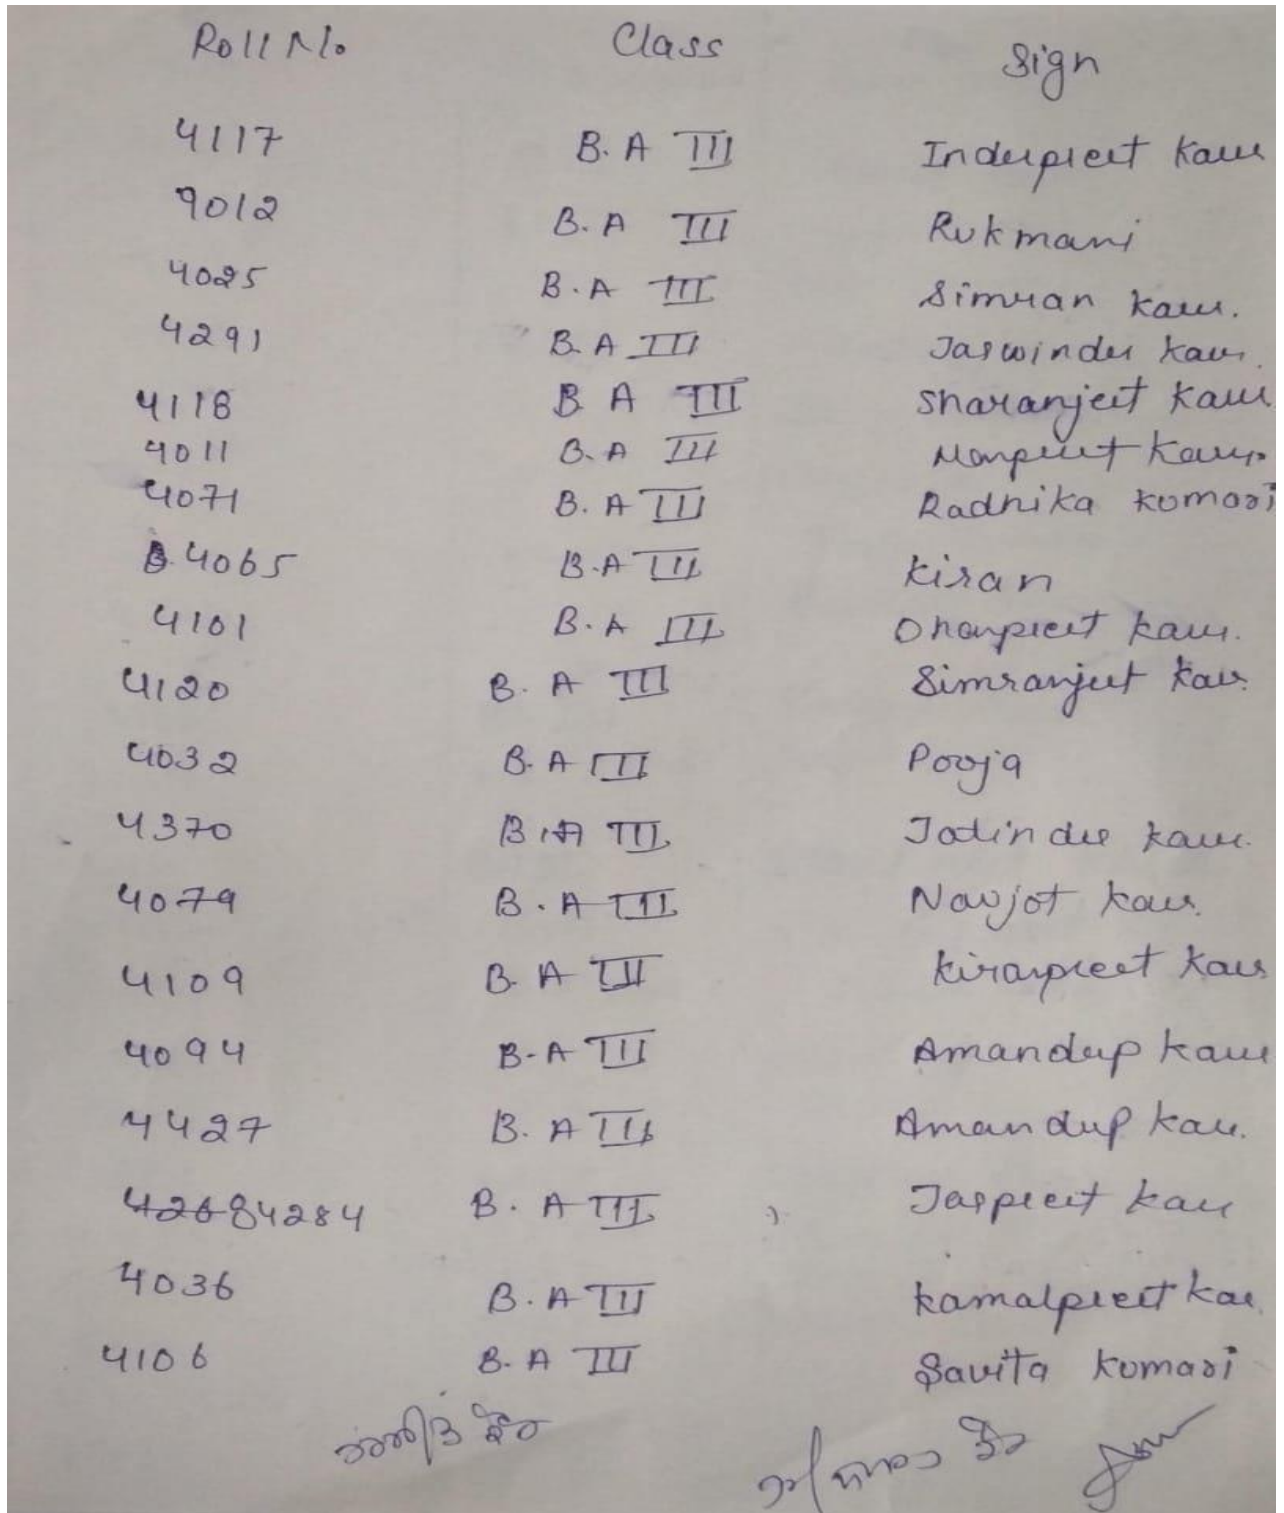 Roll No. Class Sign
4117 B.A III Inderpreet Kaur
9012 B.A III Rukmani
4025 B.A III Simran Kaur.
4291 B.A III Jaswinder Kaur.
4118 B A III Sharanjeet Kaur
4011 B.A III Manpreet Kaur.
4071 B.A III Radhika Kumari
4065 B.A III Kiran
4101 B.A III Kaur.
4120 B.A III Simranjeet Kaur.
4032 B.A III Pooja
4370 B.A III Jatinder Kaur.
4079 B.A III Navjot Kaur.
4109 B.A III Kiranpreet Kaur
4094 B.A III Amandeep Kaur
4427 B.A III Amandeep Kaur.
4268 4284 B.A III Jaspreet Kaur
4036 B.A III Kamalpreet Kau
4106 B.A III Savita Kumari
ਕੌਰ ਕੌਰ